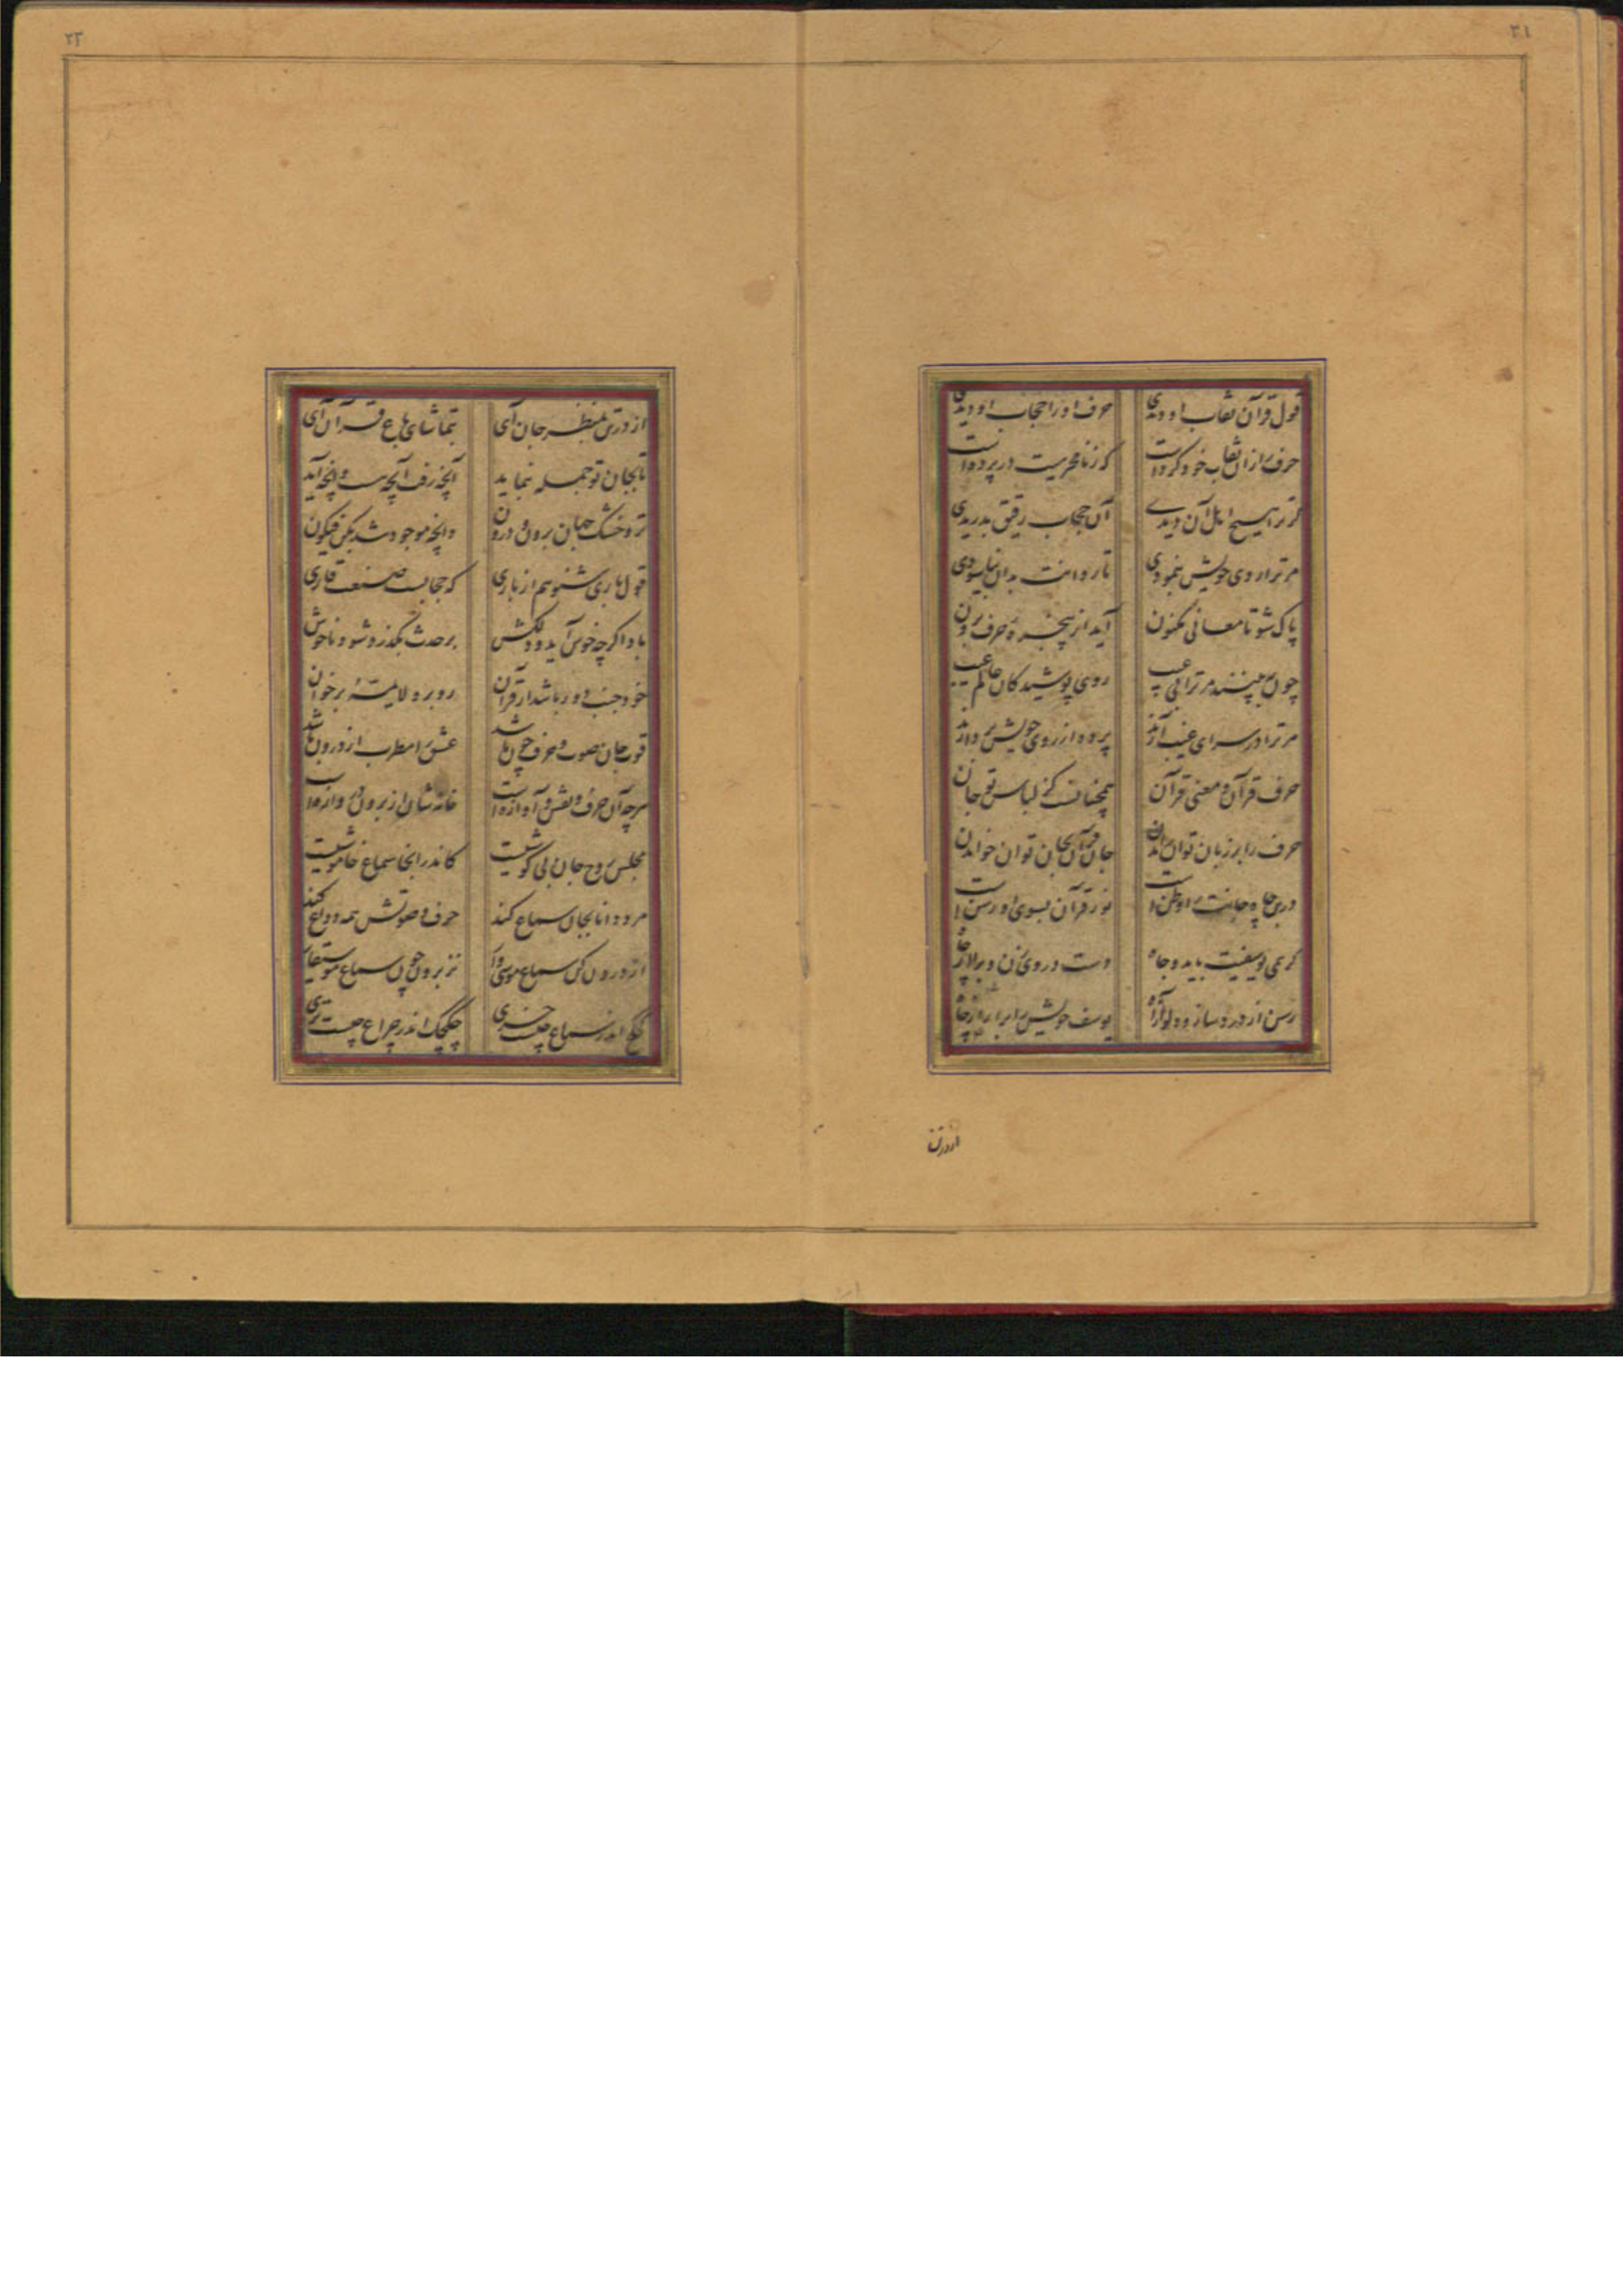 ۳۱
قول قرآن نقاب او دیدی حرف او را حجاب او دیدی
حرف را زان نقاب خود کرده است که ز نامحرمیت در پرده است
گر ترا هیچ اهل آن دیدی آن حجاب رقیق بدریدی
مر ترا روی خویش بنمودی تا روانت بدان بیاسودی
پاک شو تا معانی مکنون آید از پنجره حرف برون
چون نبینند مر ترا بی عیب روی پوشیدگان عالم غیب
مر ترا در سرای غیب آرند پرده از روی خویش بردارند
حرف قرآن و معنی قرآن همچنانست کز لباس تو جان
حرف را بر زبان توان راندن جان قرآن بجان توان خواندن
درین چاه جانت را وطن است نور قرآن بسوی او رسن است
گر همی یوسفیت باید و جاه دست در وی زن و برآ از چاه
رسن از درد ساز و دلو از آه یوسف خویش را برآر از چاه
از در تن
۳۲
از در تن بمنظر جان آی بتماشای باغ قرآن آی
تا بجان تو جمله بنماید آنچه رفت آنچه هست و آنچه آید
تر و خشک جهان برون و درون وانچه موجود شد بکن فیکون
قول باری شنو هم از باری که حجابست صنعت قاری
باد اگر چه خوش آید و دلکش بر حدث بگذرد شود ناخوش
خود جنب دور باشد از قرآن رو بره لا یمسه برخوان
قوت جان صوت و حرف چون باشد عشق را مطرب از درون باشد
هرچه آن حرف و نقش و آوازه است خانه شان از برون دروازه است
مجلس روح جان بی گوشیست کاندر آنجا سماع خاموشیست
مرد دانا بجان سماع کند حرف و صوتش همه وداع کند
از درون کن سماع موسی وار نز برون چون سماع موسیقار
اندر سماع چست خری چکچک اندر چراغ چیست تری